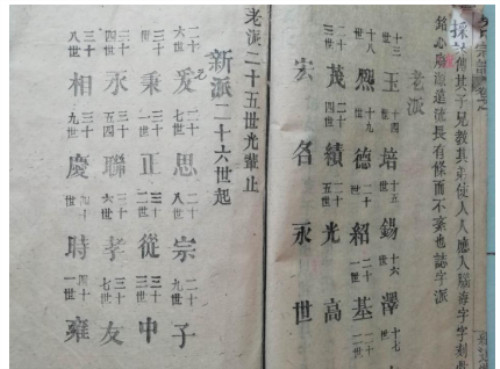 傳其子兄教其弟使人人應入腦海字字刻
銘心庶源遠流長有條而不紊也誌字派
老派
十三世 玉 十四世 培 十五世 錫 十六世 澤 十七
十八世 熙 十九世 德 二十世 紹 二十一世 基 二十二世
茂 二十四世 績 二十五世 光 高
宏 名 永 世
老派二十五世光輩止
新派二十六世起
二十六世 爰 二十七世 思 二十八世 宗 二十九世 子
三十世 秉 三十一世 正 三十二世 從 三十三世 中
三十四世 永 三十五世 聯 三十六世 孝 三十七世 友
三十八世 相 三十九世 慶 四十世 時 四十一世 雍